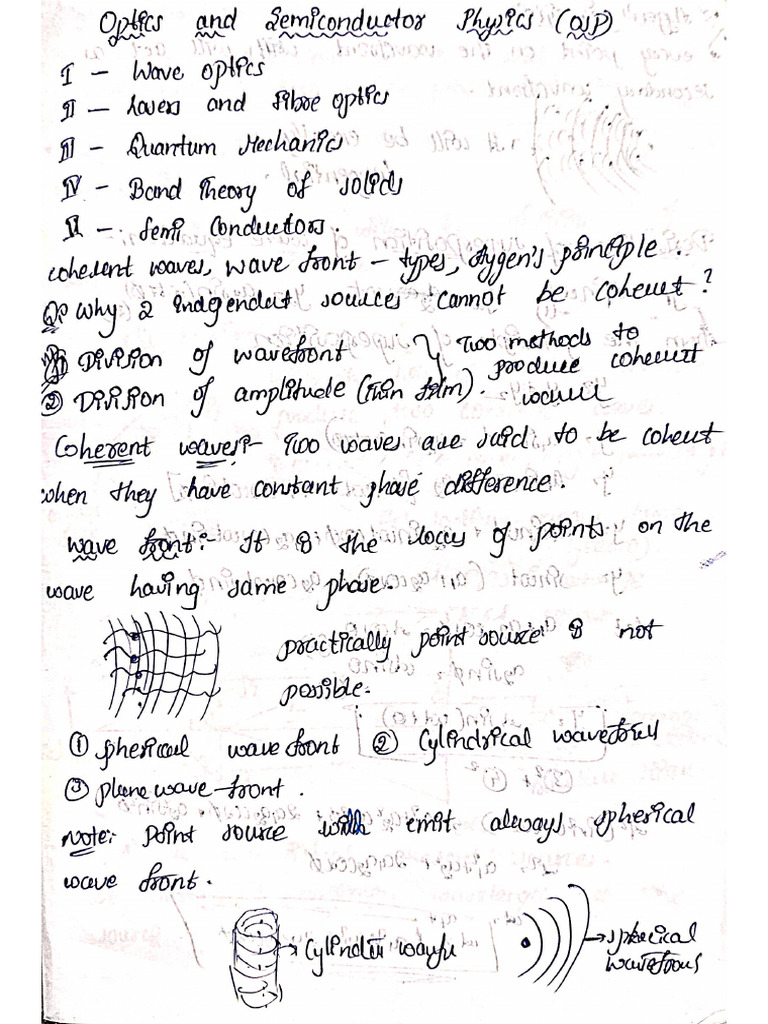 Optics and Semiconductor Physics (OSP)
I - Wave optics
II - Lasers and Fibre optics
III - Quantum Mechanics
IV - Band Theory of solids
V - Semi Conductors.
Coherent waves, wave front - types, Hygen's principle.
Q: Why 2 independent sources cannot be coherent?
① Division of wavefront
② Division of amplitude (thin film).
Two methods to
produce coherent
Coherent waves:- Two waves are said to be coherent
when they have constant phase difference.
Wave front:- It is the locus of points on the
wave having same phase.
practically point source is not
possible.
① spherical wave front ② Cylindrical wavefront
③ plane wave-front.
Note: point source will emit always spherical
wave front.
→ Cylindri wavefr
→ spherical
wavefront